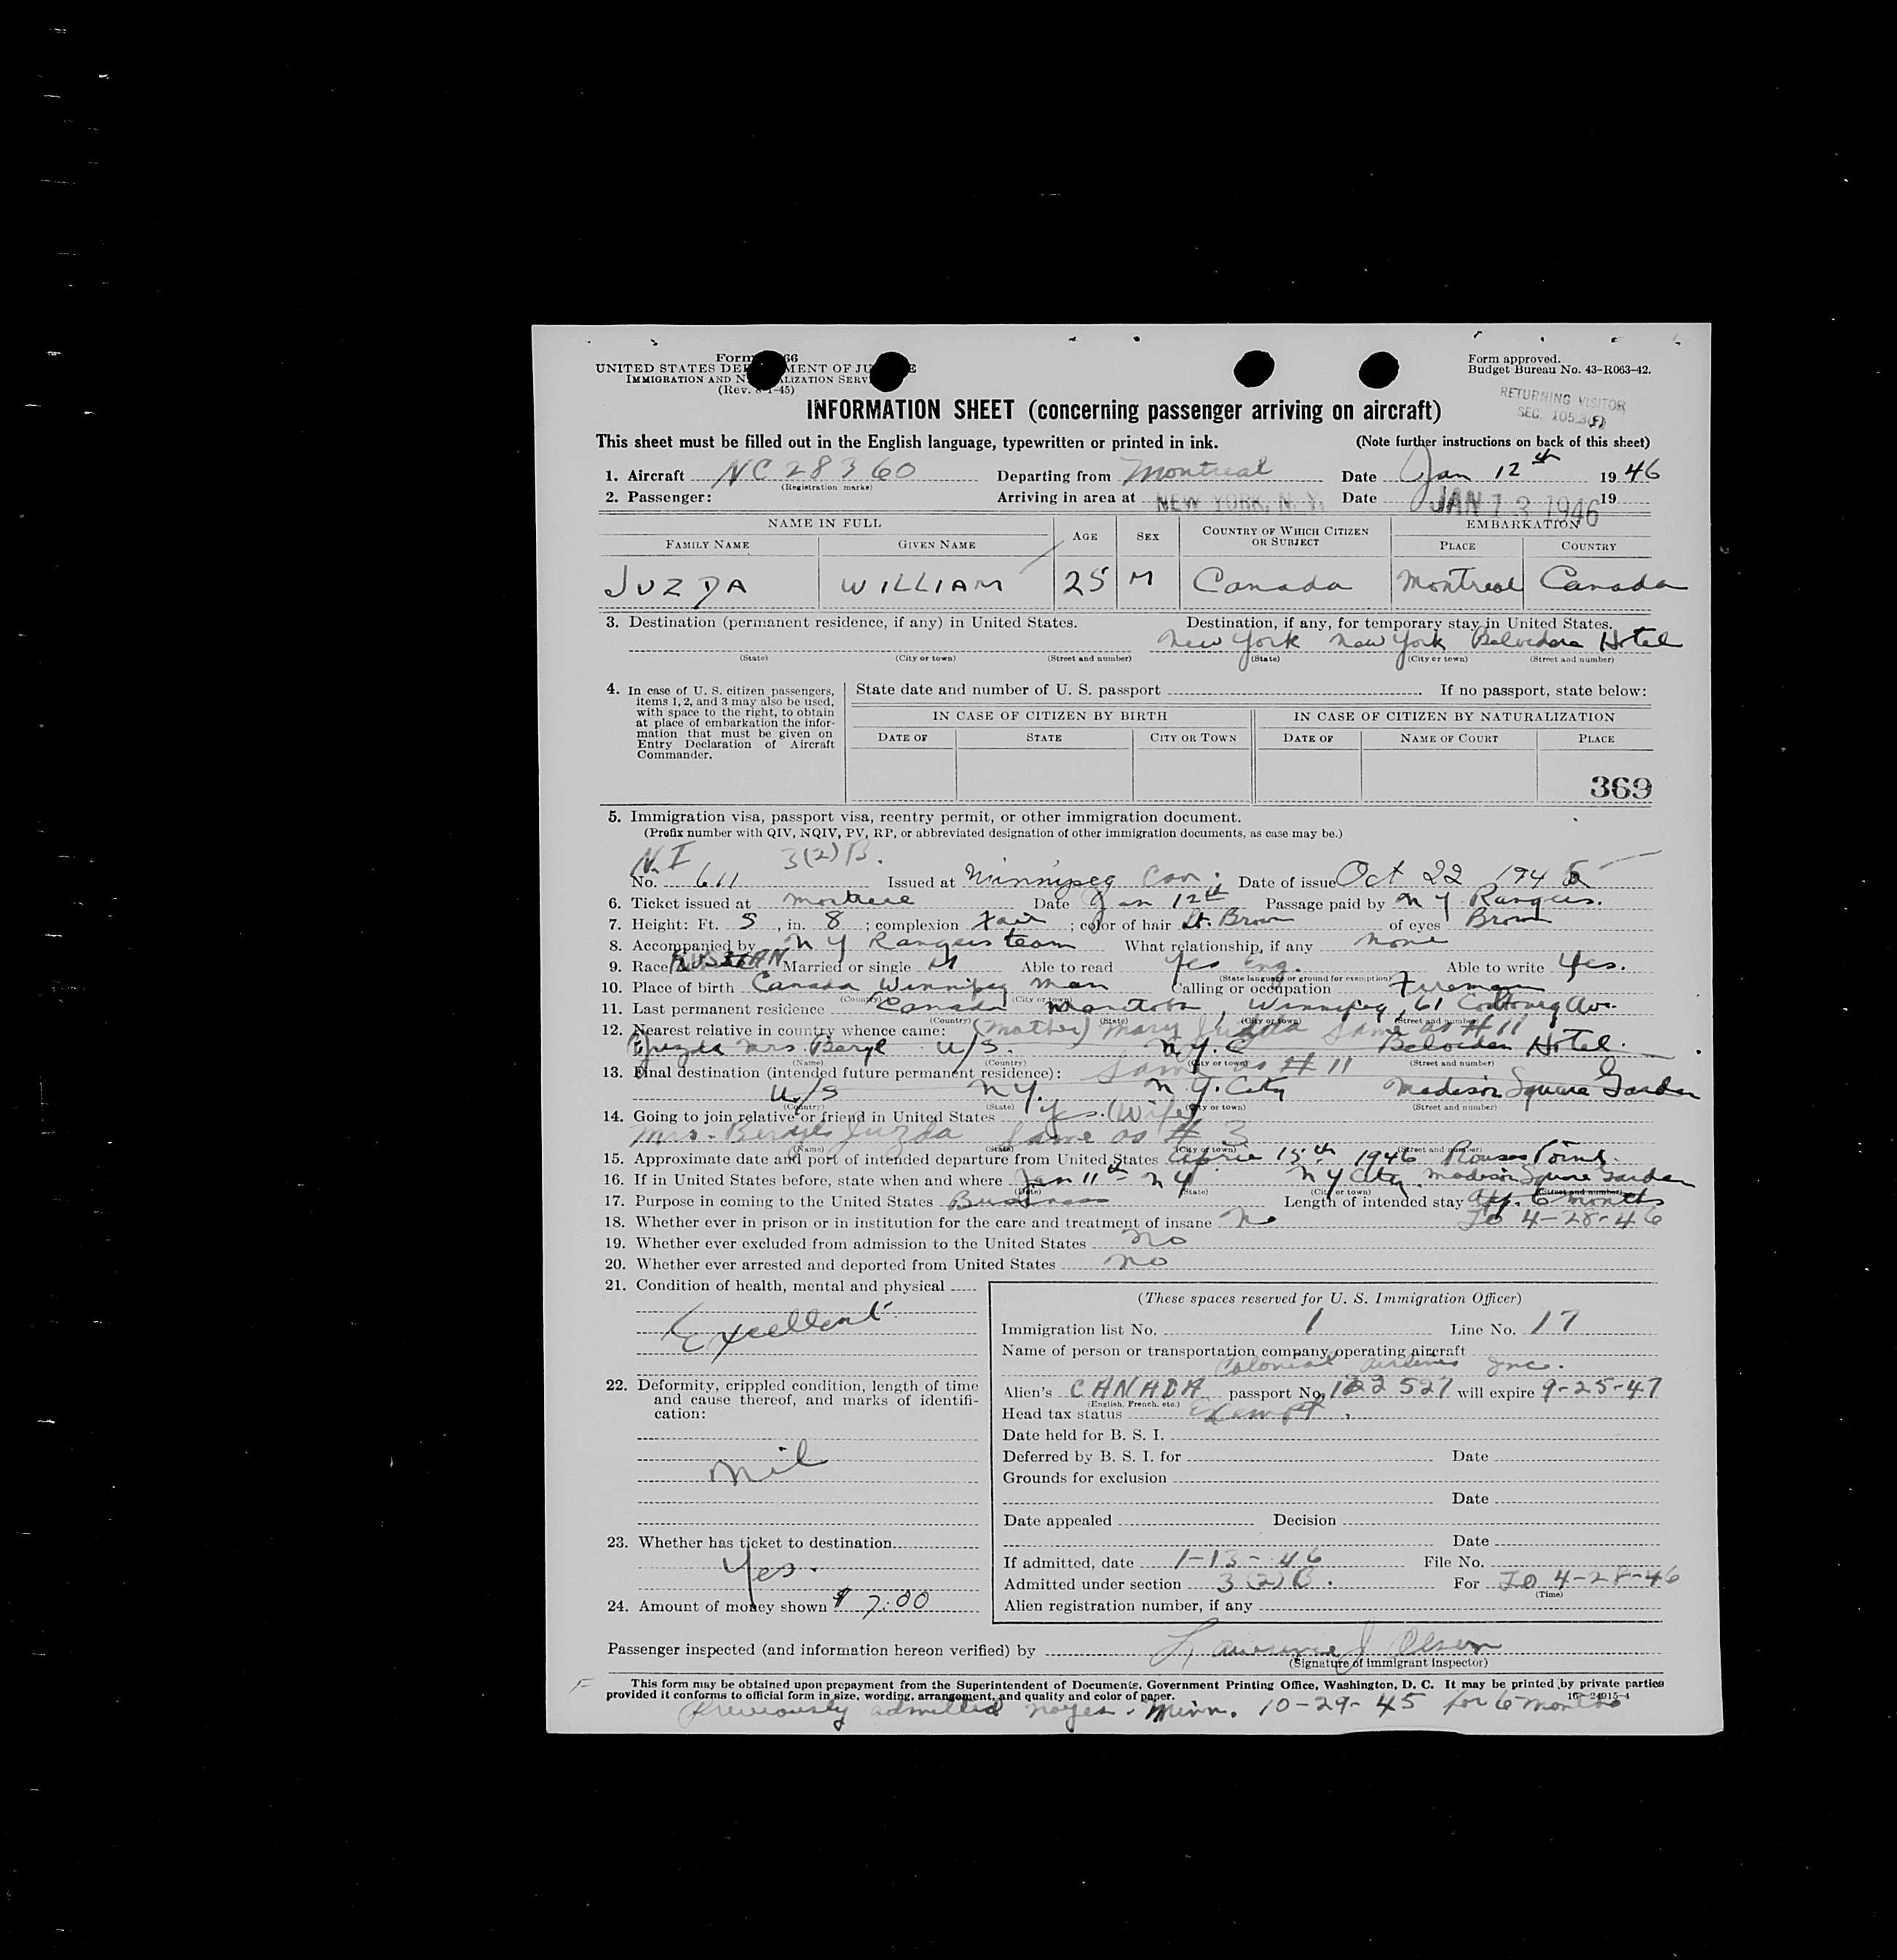 Form 66
Form approved.
UNITED STATES DE MENT OF JU E
Budget Bureau No. 43-R063-42.
IMMIGRATION AND N ALIZATION SERV
(Rev. 8-1-45)
RETURNING VISITOR
SEC. 105.3(F)
INFORMATION SHEET (concerning passenger arriving on aircraft)
This sheet must be filled out in the English language, typewritten or printed in ink. (Note further instructions on back of this sheet)
1. Aircraft NC 28360 Departing from Montreal Date Jan 12th 1946
(Registration marks)
2. Passenger: Arriving in area at NEW YORK, N. Y. Date JAN 13 1946 19
NAME IN FULL AGE SEX COUNTRY OF WHICH CITIZEN OR SUBJECT EMBARKATION
FAMILY NAME GIVEN NAME PLACE COUNTRY
JUZDA WILLIAM 25 M Canada Montreal Canada
3. Destination (permanent residence, if any) in United States. Destination, if any, for temporary stay in United States.
New York New York Belvidere Hotel
(State) (City or town) (Street and number) (State) (City or town) (Street and number)
4. In case of U. S. citizen passengers, items 1, 2, and 3 may also be used, with space to the right, to obtain at place of embarkation the information that must be given on Entry Declaration of Aircraft Commander.
State date and number of U. S. passport If no passport, state below:
IN CASE OF CITIZEN BY BIRTH IN CASE OF CITIZEN BY NATURALIZATION
DATE OF STATE CITY OR TOWN DATE OF NAME OF COURT PLACE
369
5. Immigration visa, passport visa, reentry permit, or other immigration document.
(Prefix number with QIV, NQIV, PV, RP, or abbreviated designation of other immigration documents, as case may be.)
N.I 3(2)B.
No. 611 Issued at Winnipeg Can. Date of issue Oct 22 1945
6. Ticket issued at Montreal Date Jan 12th Passage paid by N Y Rangers.
7. Height: Ft. 5, in. 8; complexion Fair; color of hair Lt. Brown of eyes Brown
8. Accompanied by N Y Rangers team What relationship, if any None
9. Race RUSSIAN Married or single M Able to read Yes Eng. Able to write Yes.
(State language or ground for exemption)
10. Place of birth Canada Winnipeg Man Calling or occupation Fireman
(Country) (City or town)
11. Last permanent residence Canada Manitoba, Winnipeg, 61 Cobourg Ave.
(Country) (State) (City or town) (Street and number)
12. Nearest relative in country whence came: (Mother) Mary Juzda Same as #11
Juzda Mrs. Beryl U/S. N.Y.C Belvidere Hotel.
(Name) (Country) (City or town) (Street and number)
13. Final destination (intended future permanent residence): Same as #11
U/S N.Y. N.Y. City Madison Square Garden
(Country) (State) (City or town) (Street and number)
14. Going to join relative or friend in United States Yes. (Wife)
Mrs. Beryl Juzda Same as # 3
(Name) (State) (City or town) (Street and number)
15. Approximate date and port of intended departure from United States April 15th 1946 Rouses Point.
16. If in United States before, state when and where Jan 11th - N Y N Y City. Madison Square Garden
(Date) (State) (City or town) (Street and number)
17. Purpose in coming to the United States Business Length of intended stay App. 6 months
To 4-28-46
18. Whether ever in prison or in institution for the care and treatment of insane No
19. Whether ever excluded from admission to the United States No
20. Whether ever arrested and deported from United States No
21. Condition of health, mental and physical
Excellent
22. Deformity, crippled condition, length of time and cause thereof, and marks of identification:
Nil
23. Whether has ticket to destination
Yes.
24. Amount of money shown $ 7.00
(These spaces reserved for U. S. Immigration Officer)
Immigration list No. 1 Line No. 17
Name of person or transportation company operating aircraft
Colonial Airlines Inc.
Alien's CANADA passport No. 122 527 will expire 9-25-47
(English, French, etc.)
Head tax status Exempt.
Date held for B. S. I.
Deferred by B. S. I. for Date
Grounds for exclusion
Date
Date appealed Decision
Date
If admitted, date 1-13-46 File No.
Admitted under section 3(2)B. For To 4-28-46
(Time)
Alien registration number, if any
Passenger inspected (and information hereon verified) by Lawrence J Olsen
(Signature of immigrant inspector)
This form may be obtained upon prepayment from the Superintendent of Documents, Government Printing Office, Washington, D. C. It may be printed by private parties
provided it conforms to official form in size, wording, arrangement, and quality and color of paper. 16-24915-4
Previously admitted Noyes, Minn. 10-29-45 for 6 months